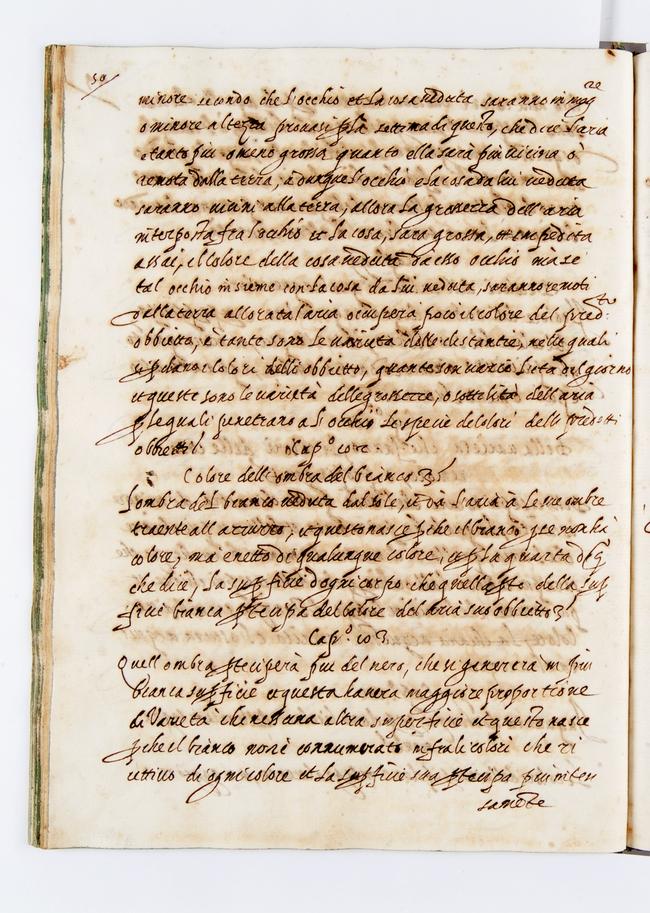 50
re
minore secondo che l'occhio et la cosa veduta saranno in mag
o minore altezza provasi p la settima di questo, che dice l'aria
e tanto piu o meno grossa quanto ella sarà piu vicina ò
remota dalla terra, adunque l'occhio e la cosa da lui veduta
saranno vicini alla terra, allora la grossezza dell'aria
interposta fra l'occhio et la cosa, sara grossa, et impedira
assai, il colore della cosa veduta da esso occhio ma se
tal occhio insieme con la cosa da lui veduta, saranno remoti
dalla terra allora tal aria occupera poco il colore del pred.to
obbietto, e tante sono le varieta delle distantie, nelle quali
si pdano i colori delli obbietti, quante son varie l'eta del giorno
et queste sono le varietà delle grossezze, o sottilità dell'aria
p le quali penetrano a l'occhio le spetie de colori delli predetti
obbietti. Cap.º 102.
Colore dell'ombra del bianco
L'ombra del bianco veduta dal sole, et dà l'aria à le sue ombre
traente all'azzurro, et questo nasce pche il bianco p se non hà
colore, ma e netto di qualunque colore, et p la quarta di q
che dice, la supfitie d'ogni corpo che quella pte della sup
fitie bianca ptecipa del colore del aria suo obbietto
Cap.º 103
Quell ombra pteciperà piu del nero, che si genererà in piu
bianca supfitie et questa havera maggiore proportione
di Varietà che nessuna altra superfitie et questo nasce
pche il bianco non è connumerato infra li colori che ri
cettivo di ogni colore et la supfitie sua ptecipa piu inten
samēte